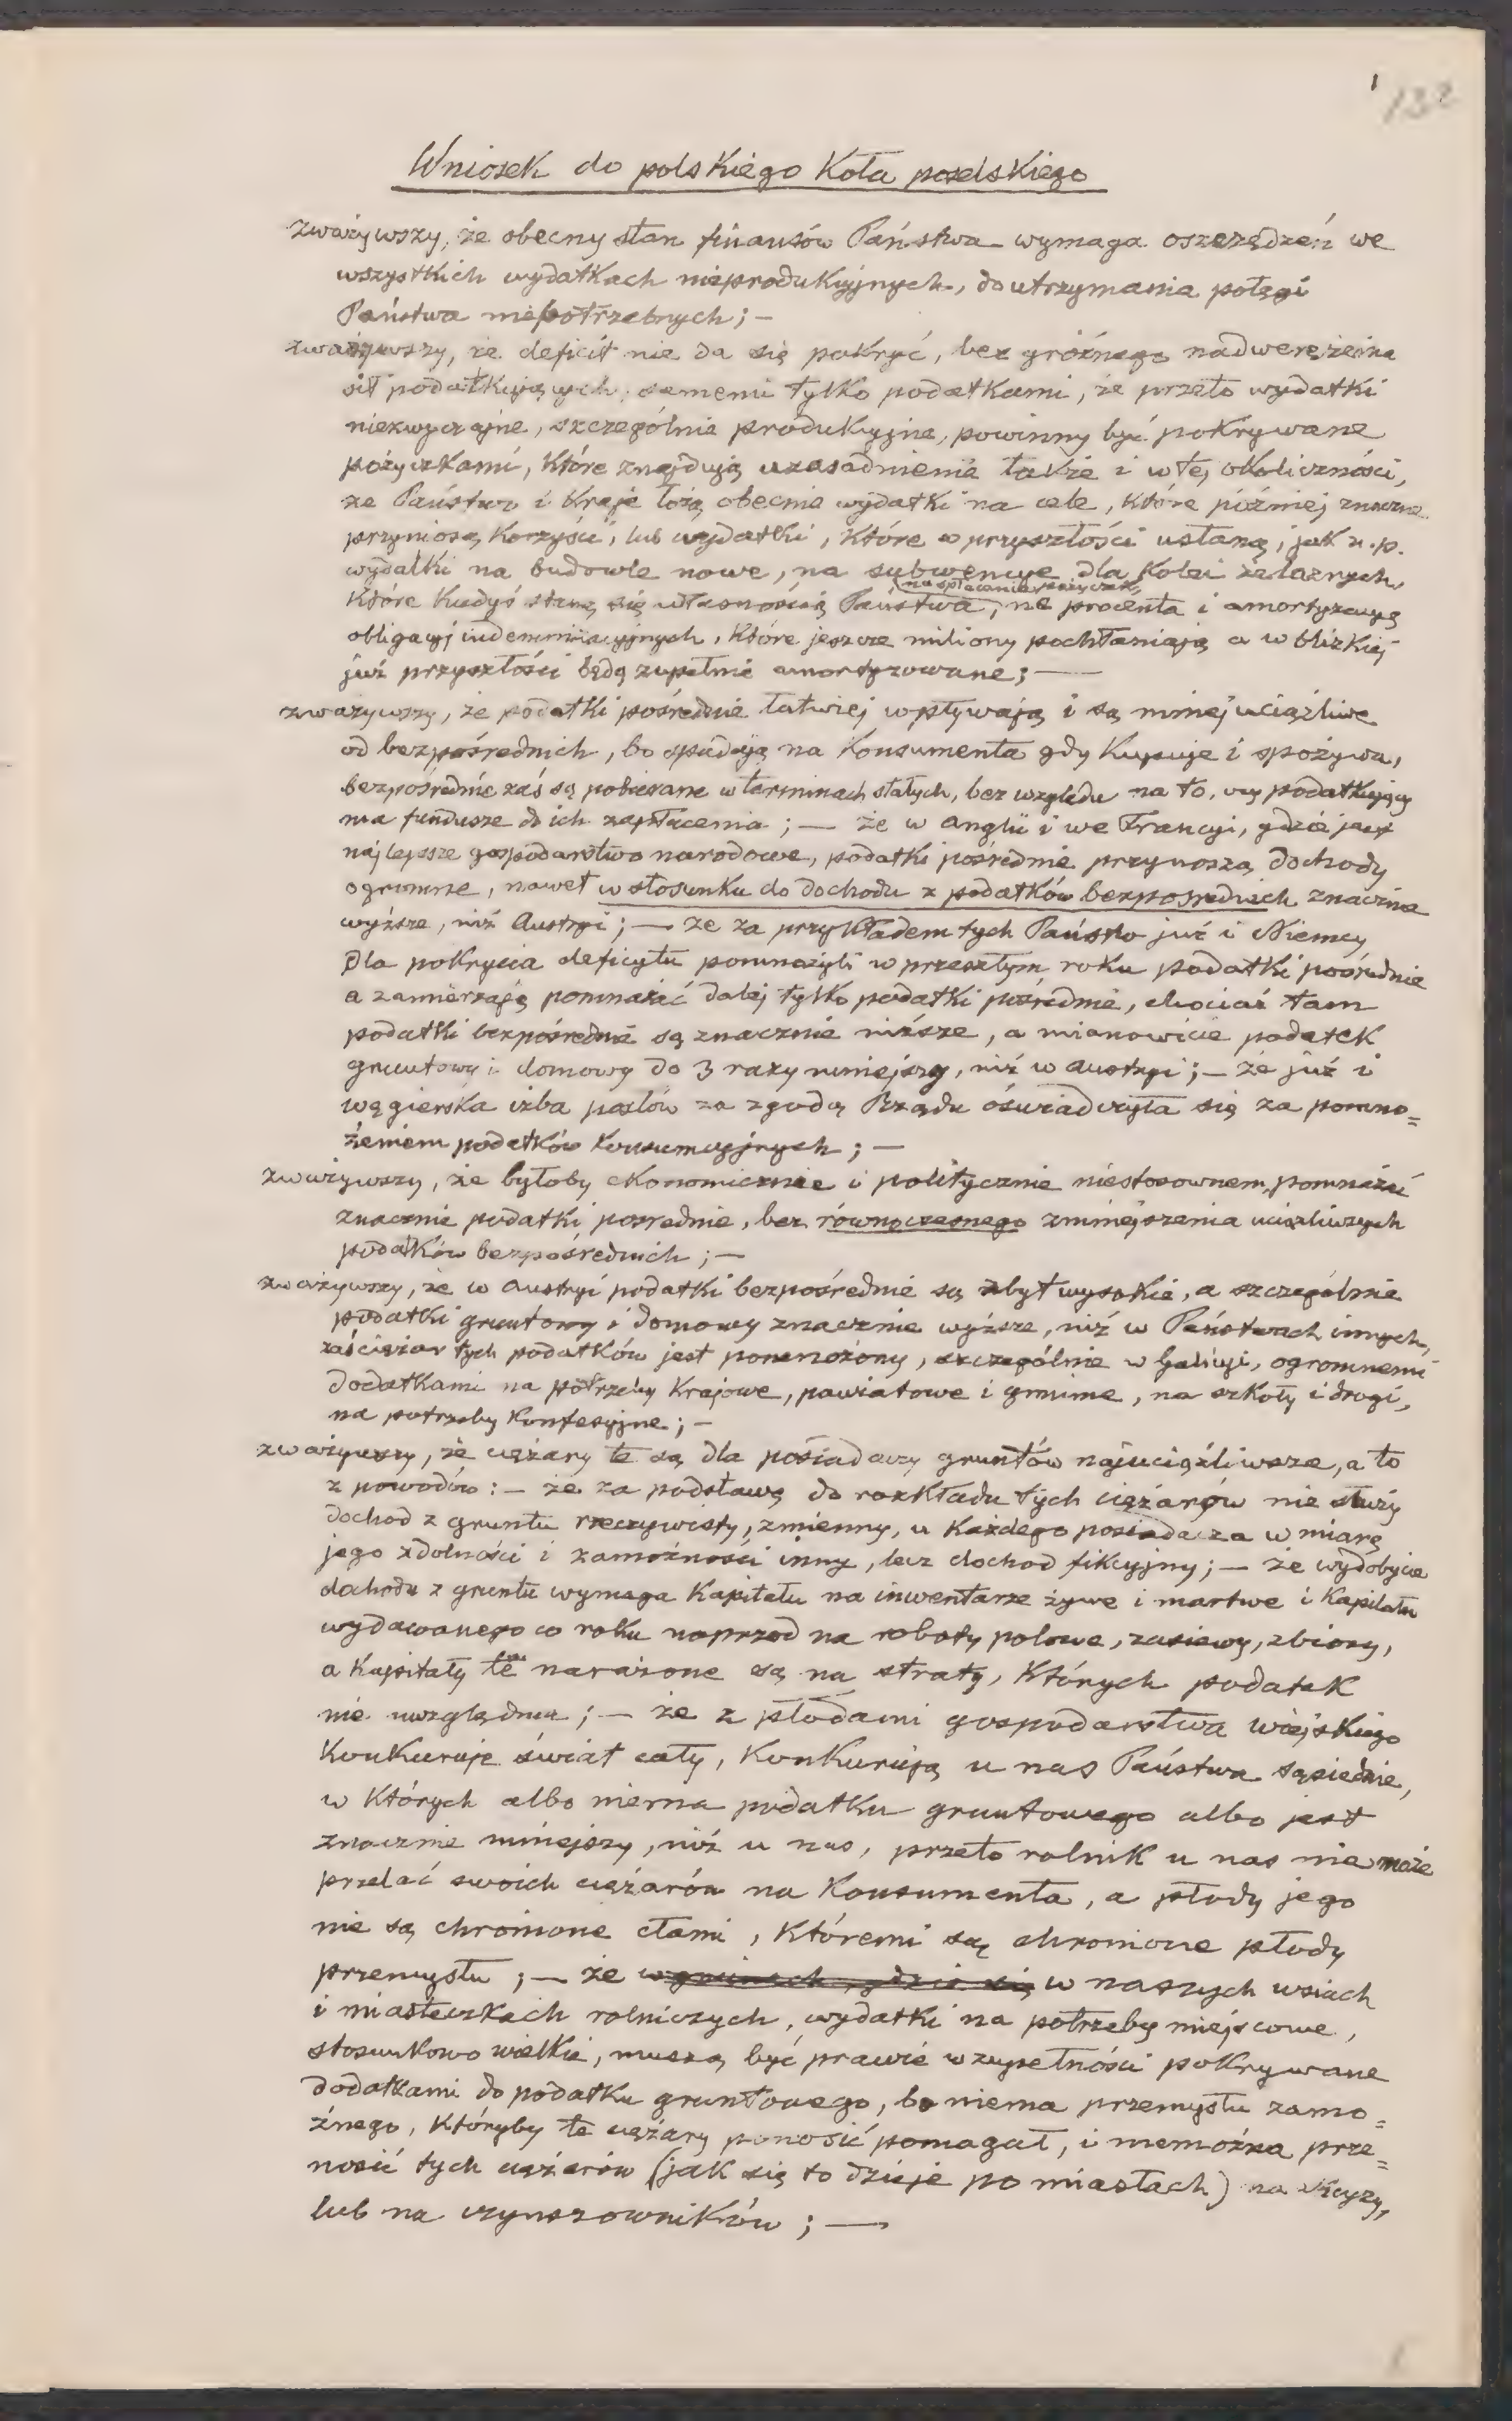 1 132
Wniosek do polskiego Koła poselskiego
zważywszy, że obecny stan finansów Państwa wymaga oszczędzeń we
wszystkich wydatkach nieprodukcyjnych, do utrzymania potęgi
Państwa niepotrzebnych; —
zważywszy, że deficit nie da się pokryć, bez groźnego nadwerężenia
sił podatkujących, samemi tylko podatkami, że przeto wydatki
niezwyczajne, szczególnie produkcyjne, powinny być pokrywane
pożyczkami, które znajdują uzasadnienie także i w tej okoliczności,
że Państwo i Kraje łożą obecnie wydatki na cele, które później znaczne
przyniosą korzyści, lub wydatki, które w przyszłości ustaną, jak n. p.
wydatki na budowle nowe, na subwencye dla Kolei żelaznych,
na spłacanie pożyczek,
które kiedyś staną się własnością Państwa, na procenta i amortyzacyę
obligacyj indemnizacyjnych, które jeszcze miliony pochłaniają a w blizkiej
już przyszłości będą zupełnie amortyzowane; —
zważywszy, że podatki pośrednie łatwiej wpływają i są mniej uciążliwe
od bezpośrednich, bo spadają na konsumenta gdy kupuje i spożywa,
bezpośrednie zaś są pobierane w terminach stałych, bez względu na to, czy podatkujący
ma fundusze do ich zapłacenia; — że w Anglii i we Francyi, gdzie jest
najlepsze gospodarstwo narodowe, podatki pośrednie przynoszą dochody
ogromne, nawet w stosunku do dochodu z podatków bezpośrednich znacznie
wyższe, niż Austryi; — że za przykładem tych Państw już i Niemcy
dla pokrycia deficytu pomnożyli w przeszłym roku podatki pośrednie
a zamierzają pomnażać dalej tylko podatki pośrednie, chociaż tam
podatki bezpośrednie są znacznie niższe, a mianowicie podatek
gruntowy i domowy do 3 razy mniejszy, niż w Austryi; — że już i
węgierska izba posłów za zgodą Rządu oświadczyła się za pomno=
żeniem podatków konsumcyjnych; —
zważywszy, że byłoby ekonomicznie i politycznie niestosownem, pomnażać
znacznie podatki pośrednie, bez równoczesnego zmniejszenia uciążliwszych
podatków bezpośrednich; —
zważywszy, że w Austryi podatki bezpośrednie są zbyt wysokie, a szczególnie
podatki gruntowy i domowy znacznie wyższe, niż w Państwach innych,
zaś ciężar tych podatków jest pomnożony, szczególnie w Galicyi, ogromnemi
dodatkami na potrzeby Krajowe, powiatowe i gminne, na szkoły i drogi,
na potrzeby konfesyjne; —
zważywszy, że ciężary te są dla posiadaczy gruntów najuciążliwsze, a to
z powodów: — że za podstawę do rozkładu tych ciężarów nie służy
dochod z gruntu rzeczywisty, zmienny, u każdego posiadacza w miarę
jego zdolności i zamożności inny, lecz dochod fikcyjny; — że wydobycie
dochodu z gruntu wymaga kapitału na inwentarze żywe i martwe i kapitału
wydawanego co roku naprzod na roboty polowe, zasiewy, zbiory,
a kapitały te narażone są na straty, których podatek
nie uwzględnia; — że z płodami gospodarstwa wiejskiego
konkuruje świat cały, konkurują u nas Państwa sąsiednie,
w których albo niema podatku gruntowego albo jest
znacznie mniejszy, niż u nas, przeto rolnik u nas nie może
przelać swoich ciężarów na konsumenta, a płody jego
nie są chronione cłami, któremi są chronione płody
przemysłu; — że w gminach, gdzie się w naszych wsiach
i miasteczkach rolniczych, wydatki na potrzeby miejscowe,
stosunkowo wielkie, muszą być prawie w zupełności pokrywane
dodatkami do podatku gruntowego, bo niema przemysłu zamo=
żnego, któryby te ciężary ponosić pomagał, i niemożna prze=
nosić tych ciężarów (jak się to dzieje po miastach) na
lub na czynszowników; —